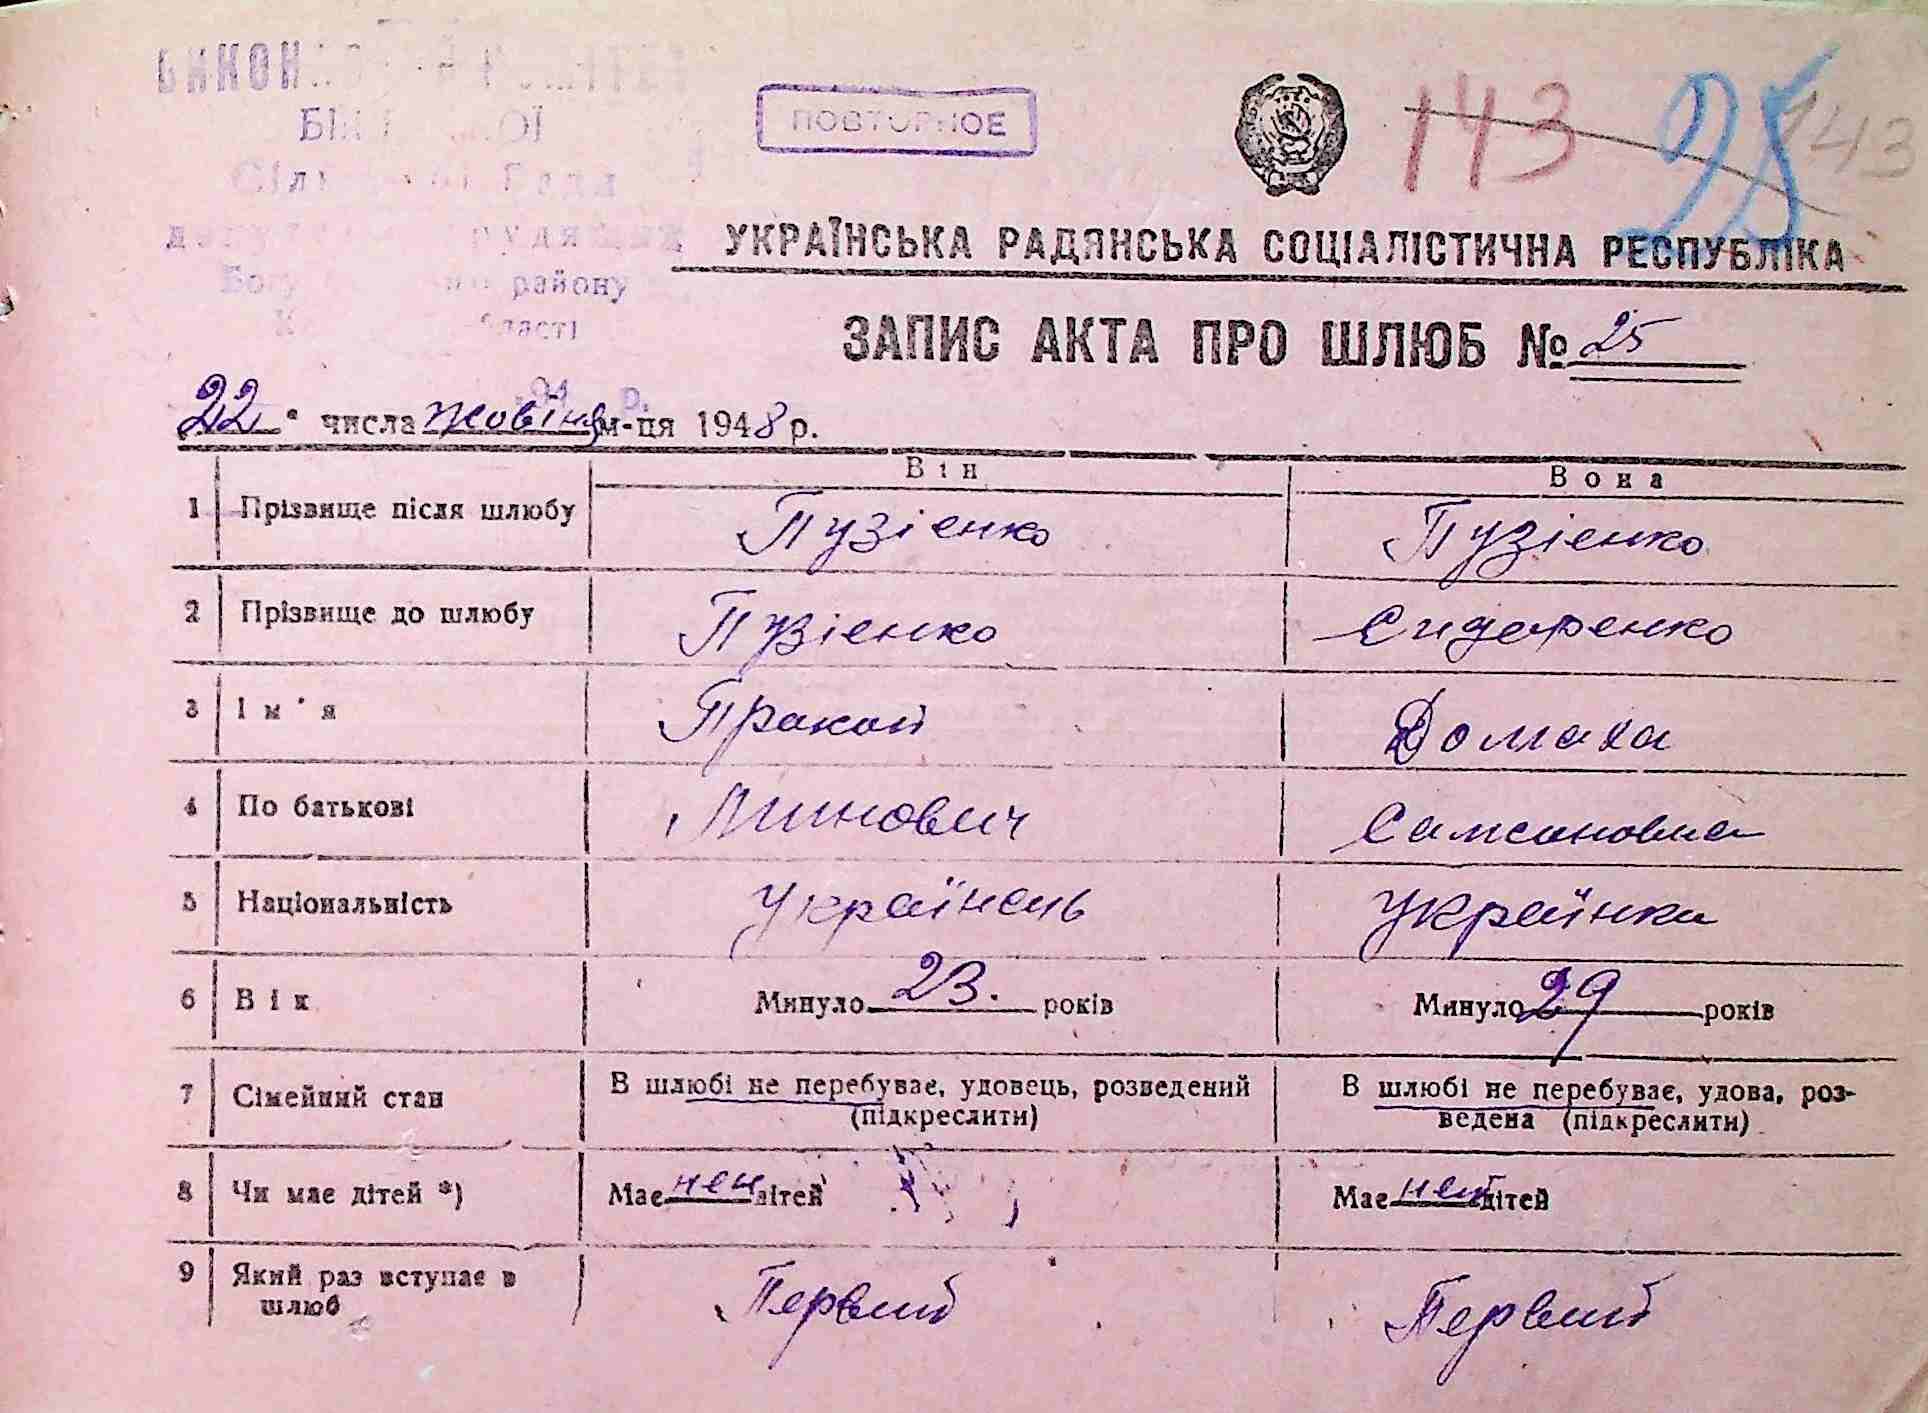 ПОВТОРНОЕ
143 25 143
району
УКРАЇНСЬКА РАДЯНСЬКА СОЦІАЛІСТИЧНА РЕСПУБЛІКА
ЗАПИС АКТА ПРО ШЛЮБ № 25
22 " числа жовтня м-ця 1948 р.
Він Вона
1 Прізвище після шлюбу Пузіенко Пузіенко
2 Прізвище до шлюбу Пузіенко Сидоренко
3 Ім'я Домаха
4 По батькові Минович Самсоновна
5 Національність Українець Українка
6 Вік Минуло 23. років Минуло 29 років
7 Сімейний стан В шлюбі не перебуває, удовець, розведений (підкреслити) В шлюбі не перебуває, удова, роз-
ведена (підкреслити)
8 Чи має дітей *) Має дітей Має дітей
9 Який раз вступає в
шлюб Первий Первий